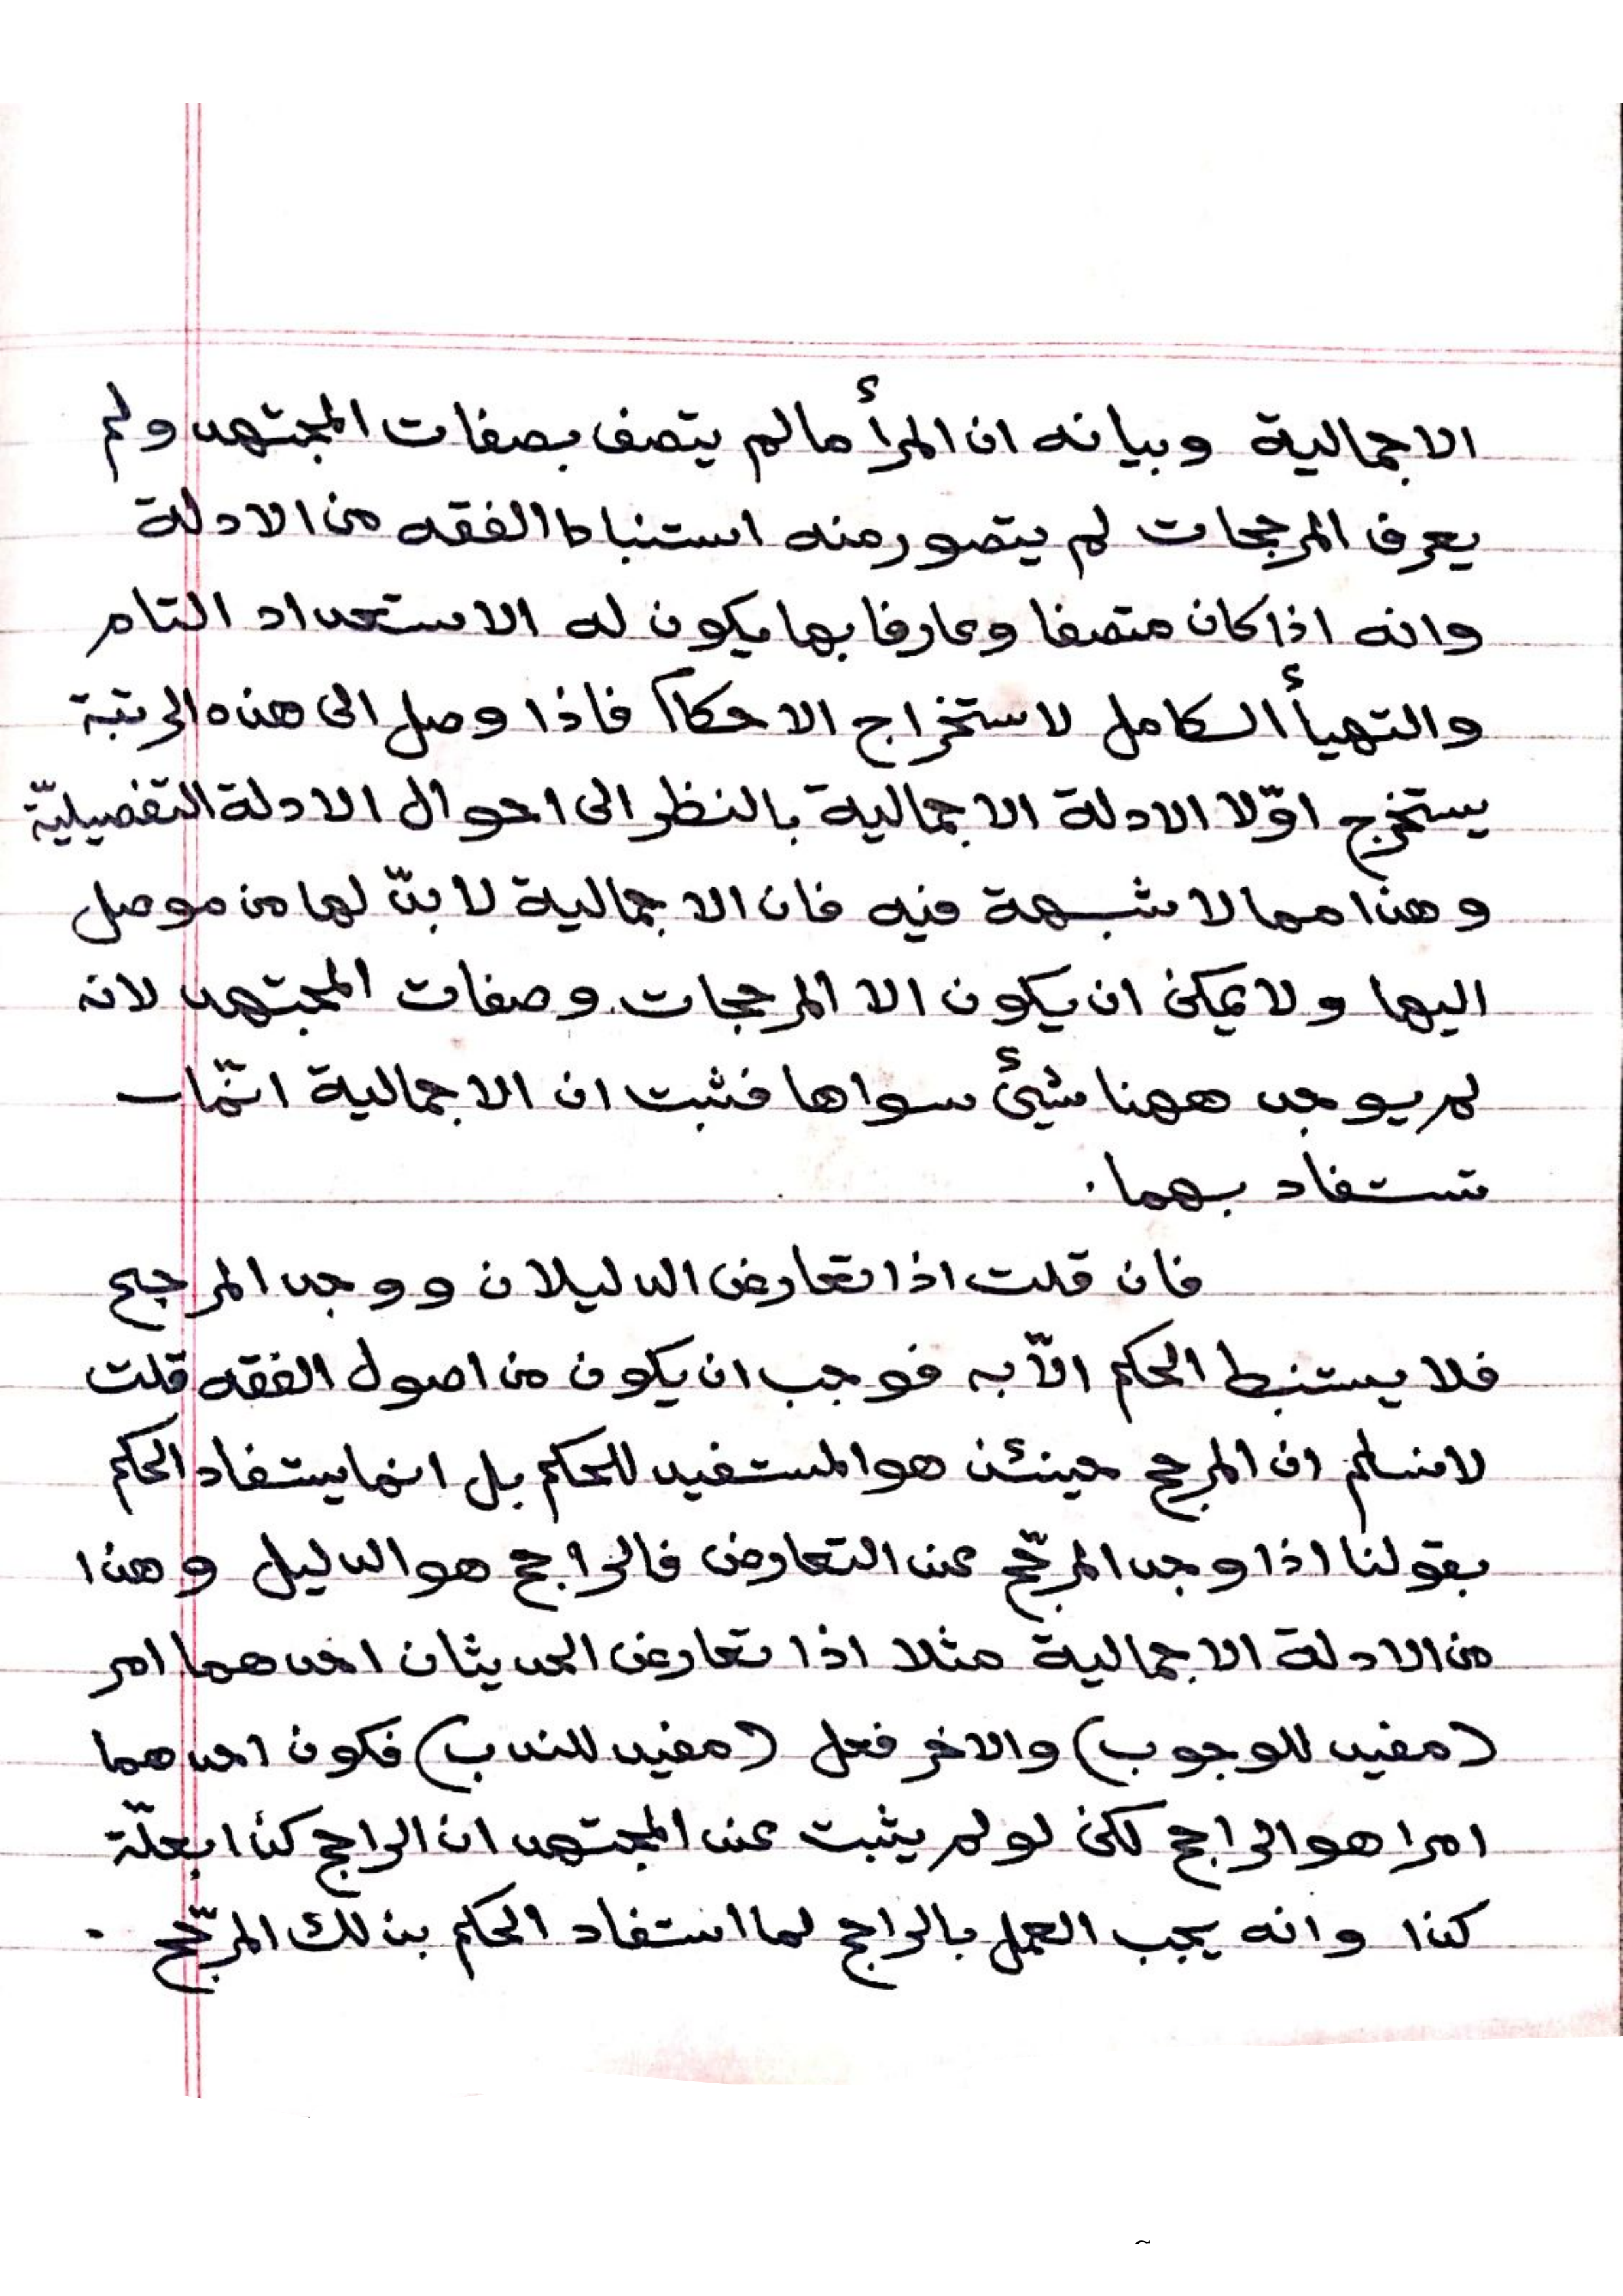 الاجمالية وبيانه ان المرأ ما لم يتصف بصفات المجتهد ولم
يعرف المرجحات لم يتصور منه استنباط الفقه من الادلة
وانه اذا كان متصفا وعارفا بها يكون له الاستعداد التام
والتهيأ الكامل لاستخراج الاحكاآ فاذا وصل الى هذه الرتبة
يستخرج اوّلا الادلة الاجمالية بالنظر الى احوال الادلة التفصيليّة
وهذا مما لا شبهة فيه فان الاجمالية لا بدّ لها من موصل
اليها ولا يمكن ان يكون الا المرجحات وصفات المجتهد لانه
لم يوجد ههنا شيئ سواها فثبت ان الاجمالية انّما
تستفاد بهما.
فان قلت اذا تعارض الدليلان ووجد المرجح
فلا يستنبط الحكم الّا به فوجب ان يكون من اصول الفقه قلت
لا نسلم ان المرجح حينئذ هو المستفيد للحكم بل انما يستفاد الحكم
بقولنا اذا وجد المرجّح عند التعارض فالراجح هو الدليل وهذا
من الادلة الاجمالية مثلا اذا تعارض الحديثان احدهما امر
(مفيد للوجوب) والاخر فعل (مفيد للندب) فكون احدهما
امرا هو الراجح لكن لو لم يثبت عند المجتهد ان الراجح كذا بعلّة
كذا وانه يجب العمل بالراجح لما استفاد الحكم بذلك المرجّح .